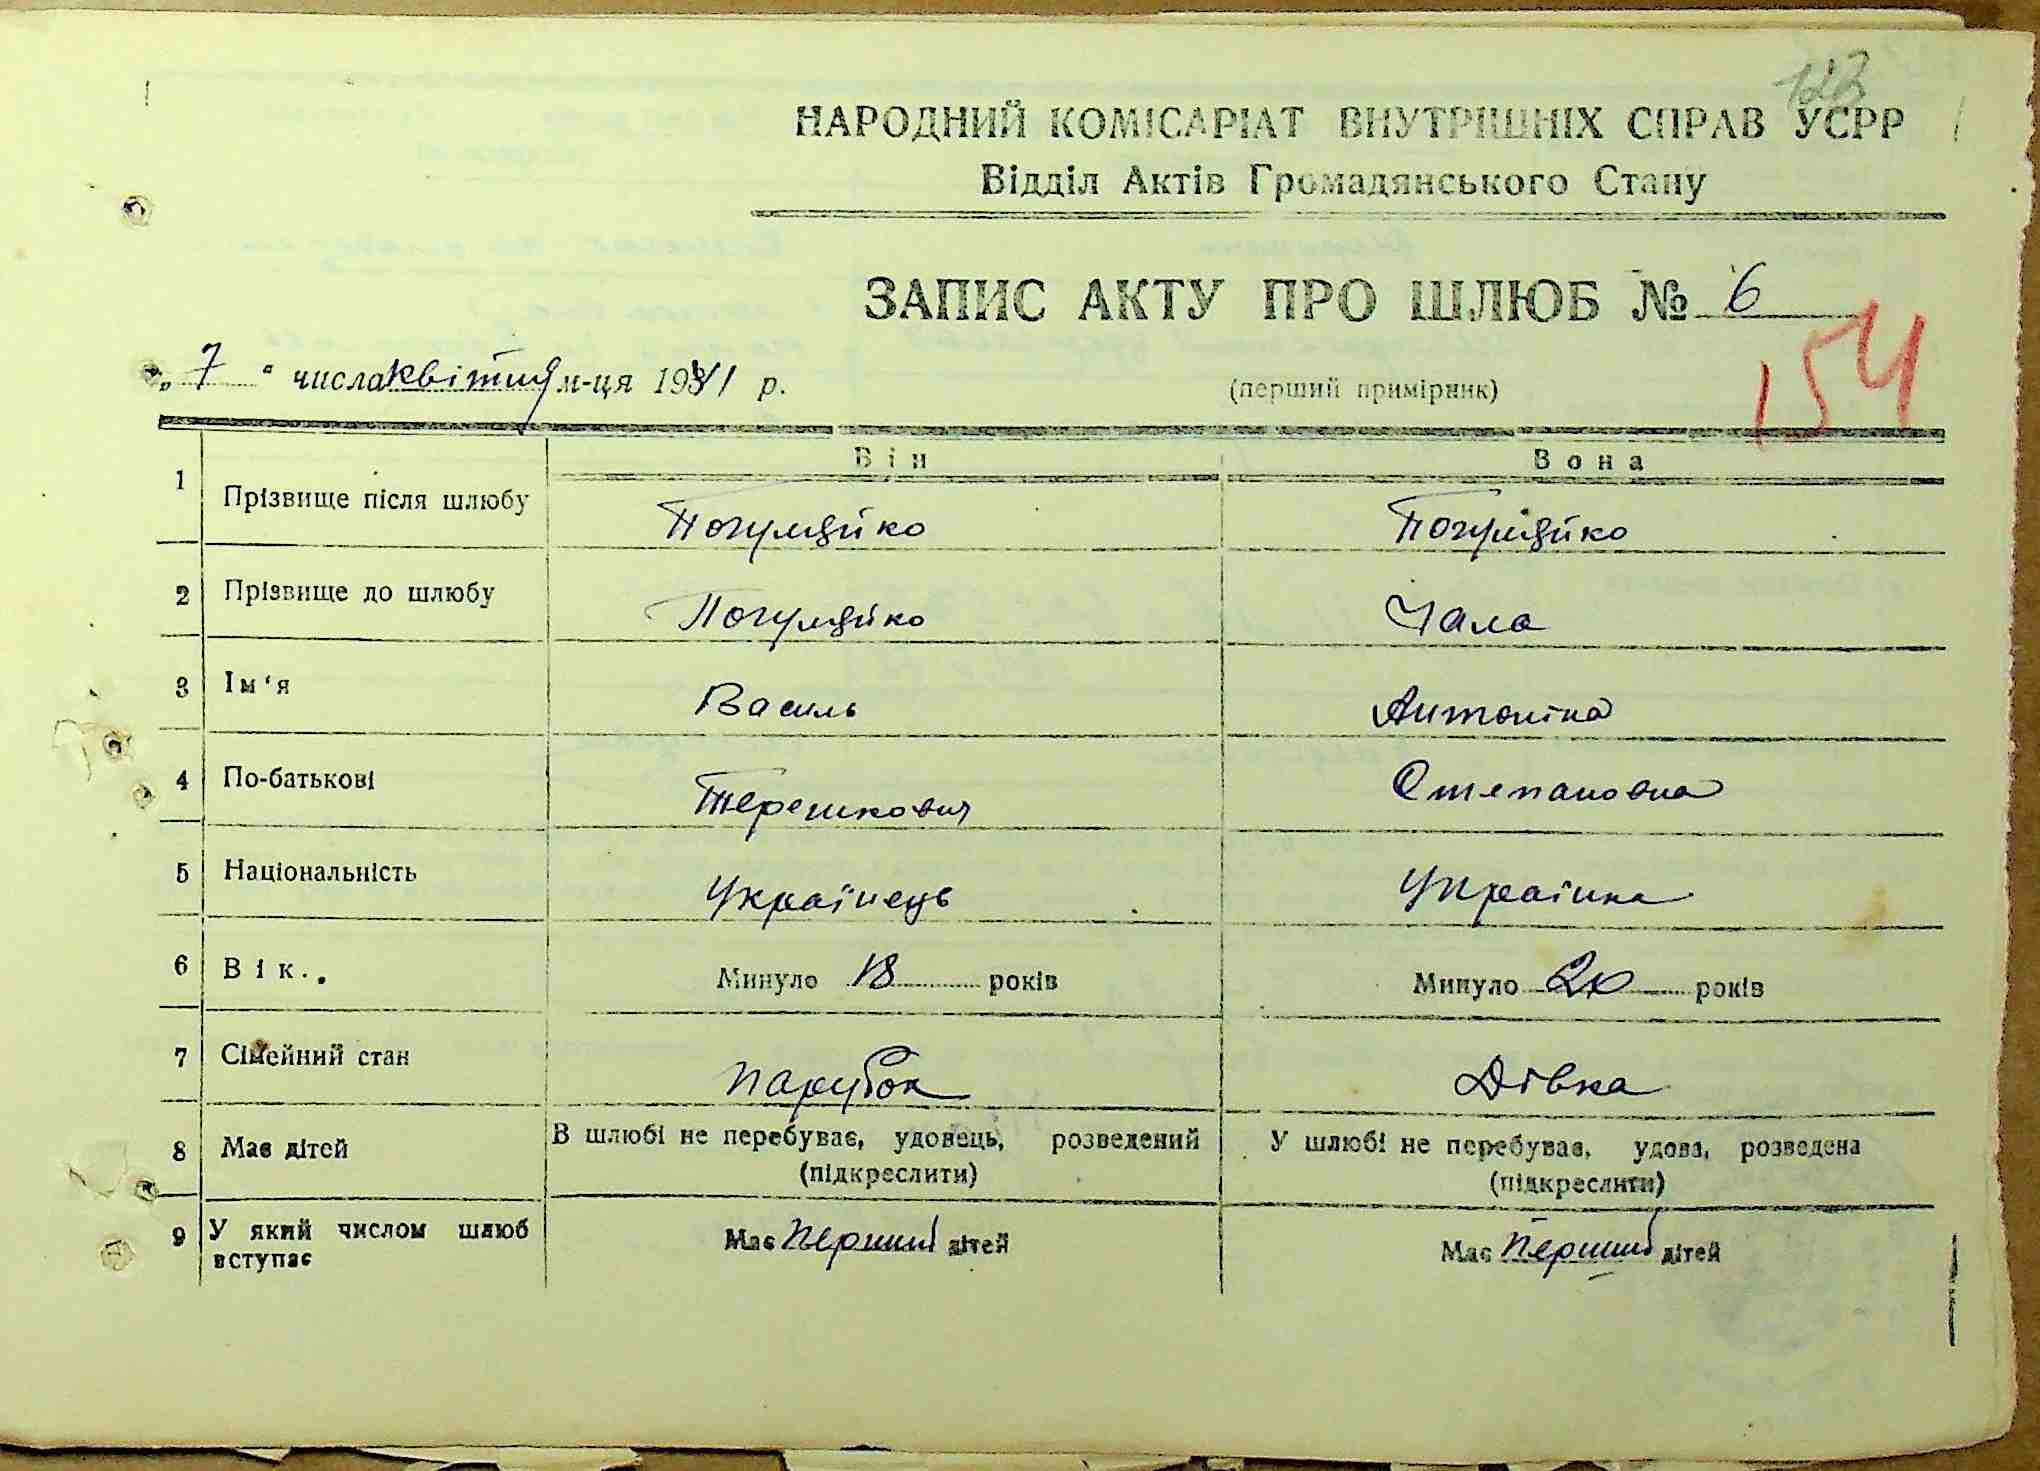 123
НАРОДНИЙ КОМІСАРІАТ ВНУТРІШНІХ СПРАВ УСРР
Відділ Актів Громадянського Стану
ЗАПИС АКТУ ПРО ШЛЮБ № 6
154
„ 7 " числа квітня м-ця 1941 р.
(перший примірник)
Він Вона
1 Прізвище після шлюбу Погуляйко Погуляйко
2 Прізвище до шлюбу Погуляйко Чала
3 Ім'я Василь Антоніна
4 По-батькові Терешкович Степановна
5 Національність Українець Українка
6 Вік.. Минуло 18 років Минуло 20 років
7 Сімейний стан парубок Дівка
8 Має дітей В шлюбі не перебуває, удовець, розведений У шлюбі не перебуває, удова, розведена
(підкреслити) (підкреслити)
9 У який числом шлюб вступає Має перший дітей Має перший дітей